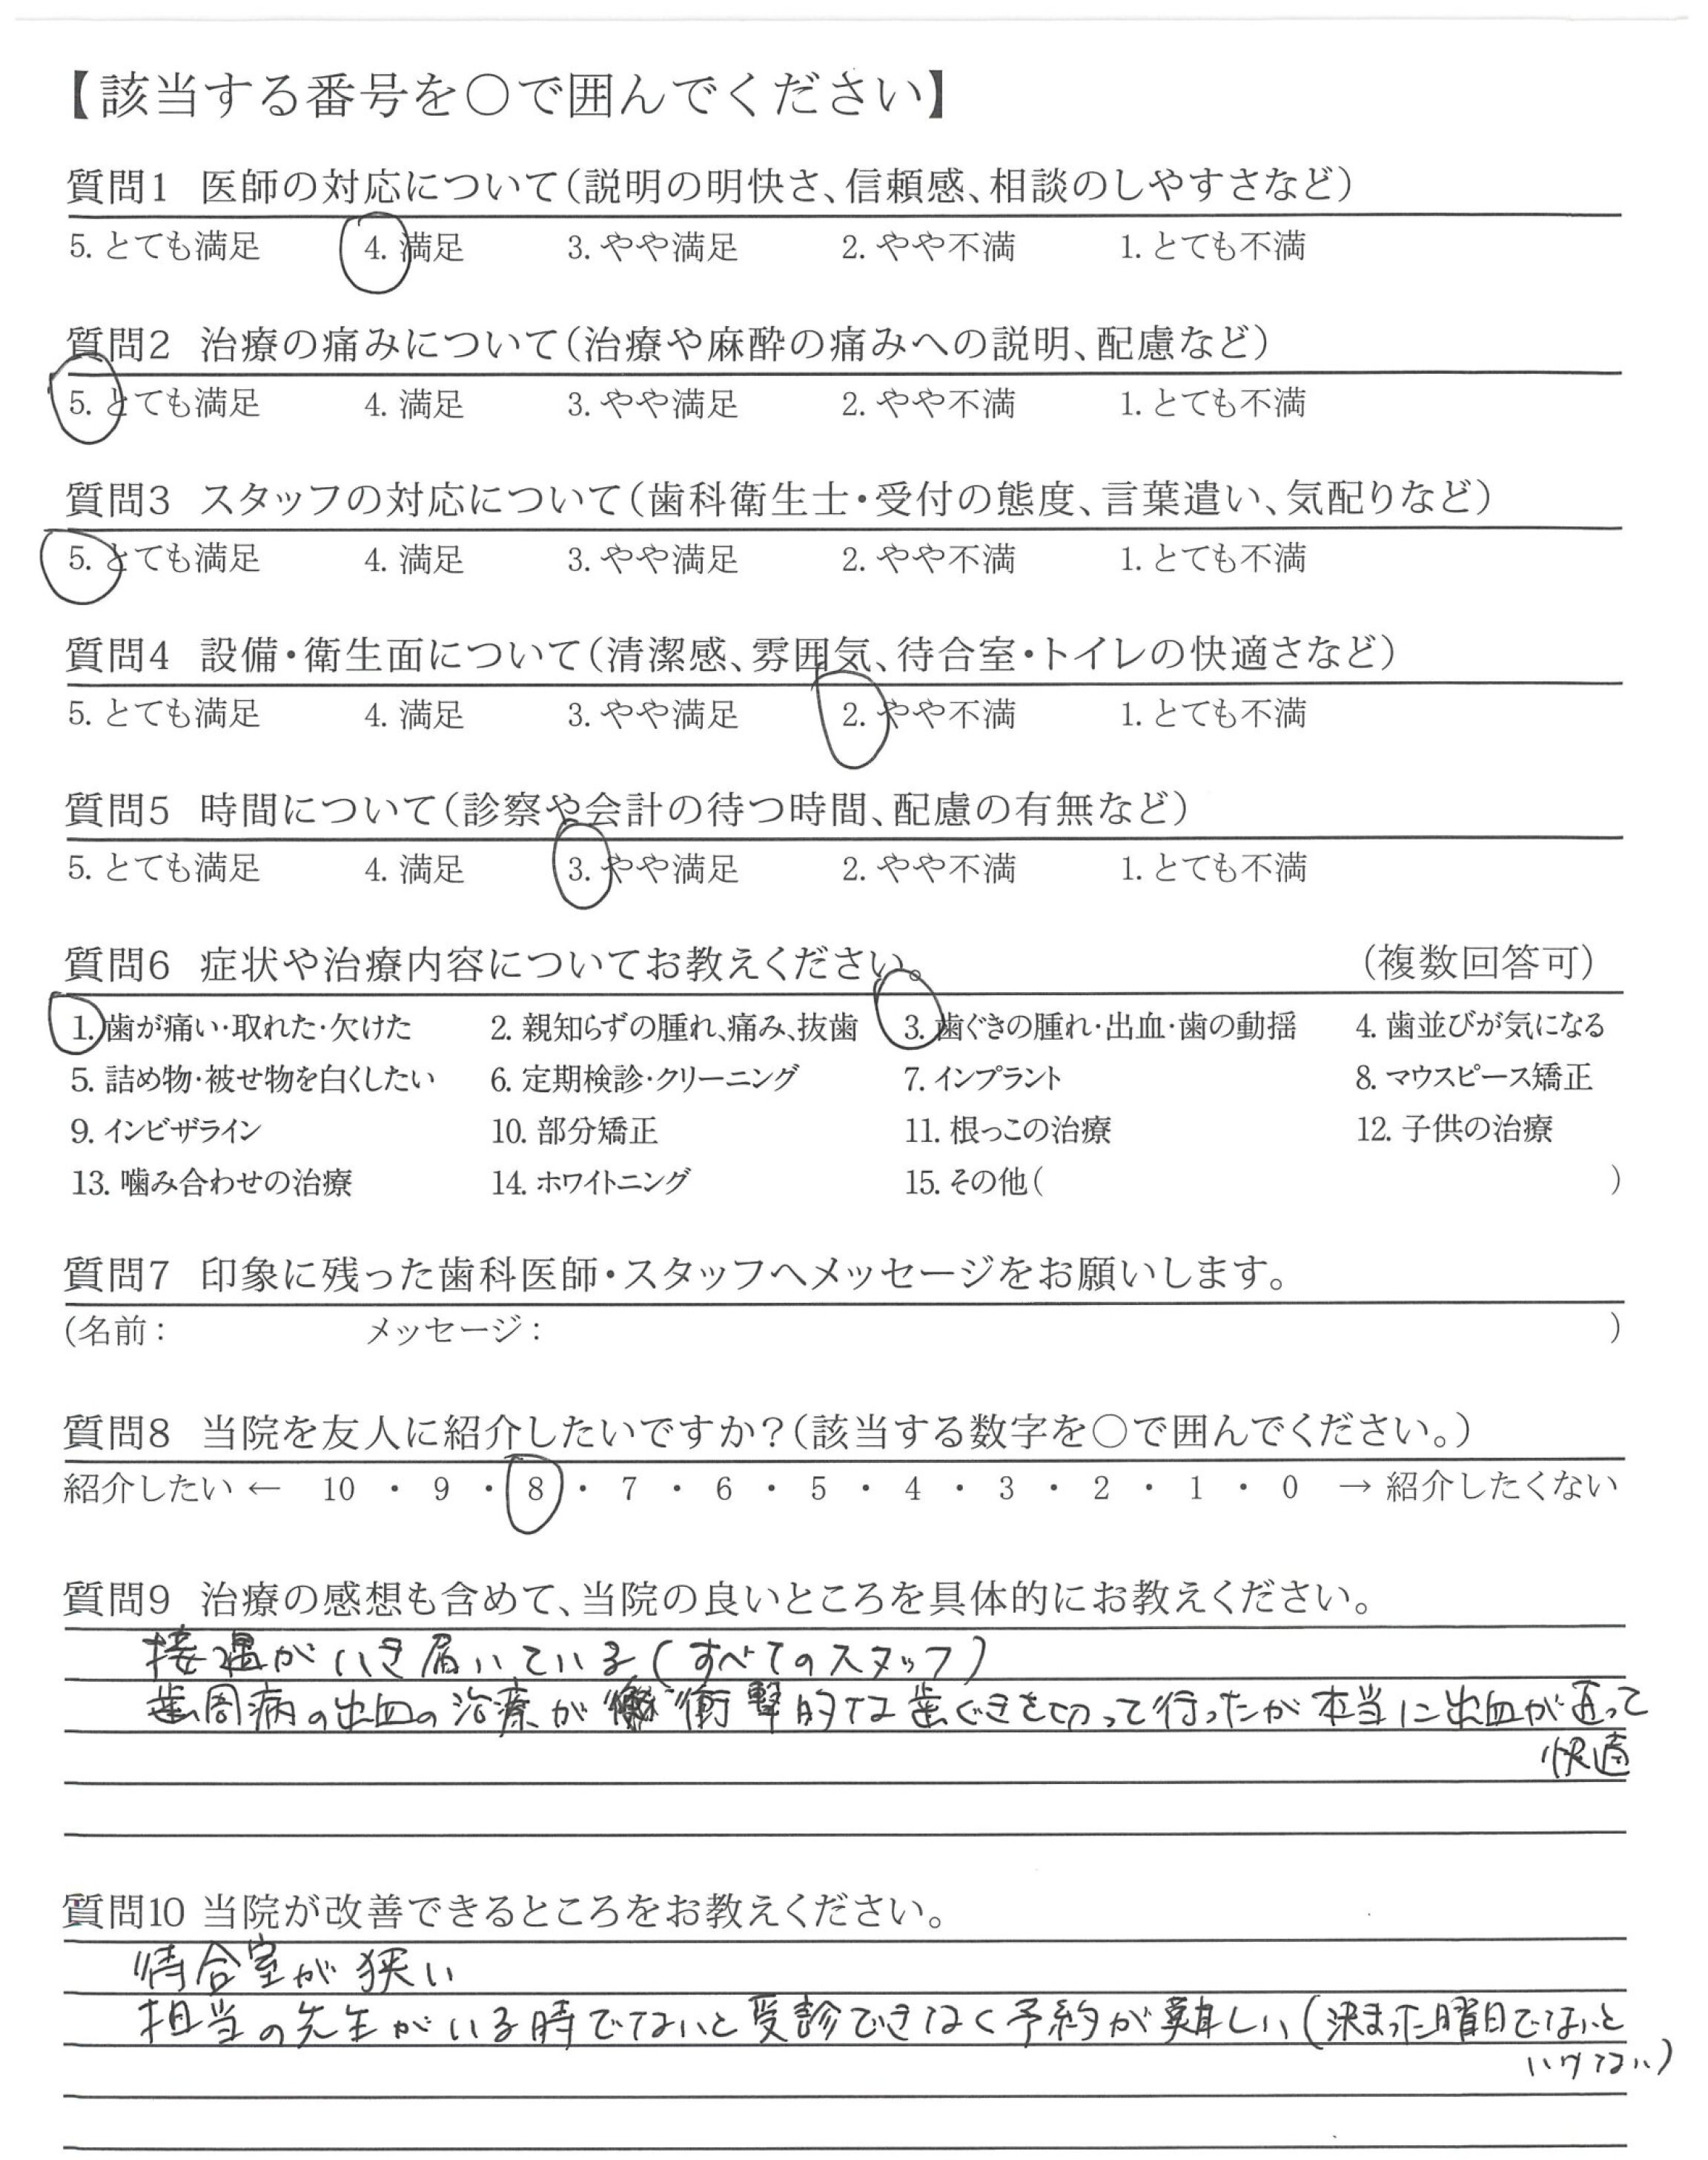 【該当する番号を○で囲んでください】
質問1 医師の対応について(説明の明快さ、信頼感、相談のしやすさなど)
5. とても満足 4. 満足 3. やや満足 2. やや不満 1. とても不満
質問2 治療の痛みについて(治療や麻酔の痛みへの説明、配慮など)
5. とても満足 4. 満足 3. やや満足 2. やや不満 1. とても不満
質問3 スタッフの対応について(歯科衛生士・受付の態度、言葉遣い、気配りなど)
5. とても満足 4. 満足 3. やや満足 2. やや不満 1. とても不満
質問4 設備・衛生面について(清潔感、雰囲気、待合室・トイレの快適さなど)
5. とても満足 4. 満足 3. やや満足 2. やや不満 1. とても不満
質問5 時間について(診察や会計の待つ時間、配慮の有無など)
5. とても満足 4. 満足 3. やや満足 2. やや不満 1. とても不満
質問6 症状や治療内容についてお教えください。 (複数回答可)
1. 歯が痛い・取れた・欠けた 2. 親知らずの腫れ、痛み、抜歯 3. 歯ぐきの腫れ・出血・歯の動揺 4. 歯並びが気になる
5. 詰め物・被せ物を白くしたい 6. 定期検診・クリーニング 7. インプラント 8. マウスピース矯正
9. インビザライン 10. 部分矯正 11. 根っこの治療 12. 子供の治療
13. 噛み合わせの治療 14. ホワイトニング 15. その他( )
質問7 印象に残った歯科医師・スタッフへメッセージをお願いします。
(名前: メッセージ: )
質問8 当院を友人に紹介したいですか?(該当する数字を○で囲んでください。)
紹介したい ← 10 ・ 9 ・ 8 ・ 7 ・ 6 ・ 5 ・ 4 ・ 3 ・ 2 ・ 1 ・ 0 → 紹介したくない
質問9 治療の感想も含めて、当院の良いところを具体的にお教えください。
接遇がいき届いている(すべてのスタッフ)
歯周病の出血の治療が衝撃的な歯ぐきを切って行ったが本当に出血が って
快適
質問10 当院が改善できるところをお教えください。
待合室が狭い
担当の先生がいる時でないと受診できなく予約が難しい(決まった曜日でないと
いけない)